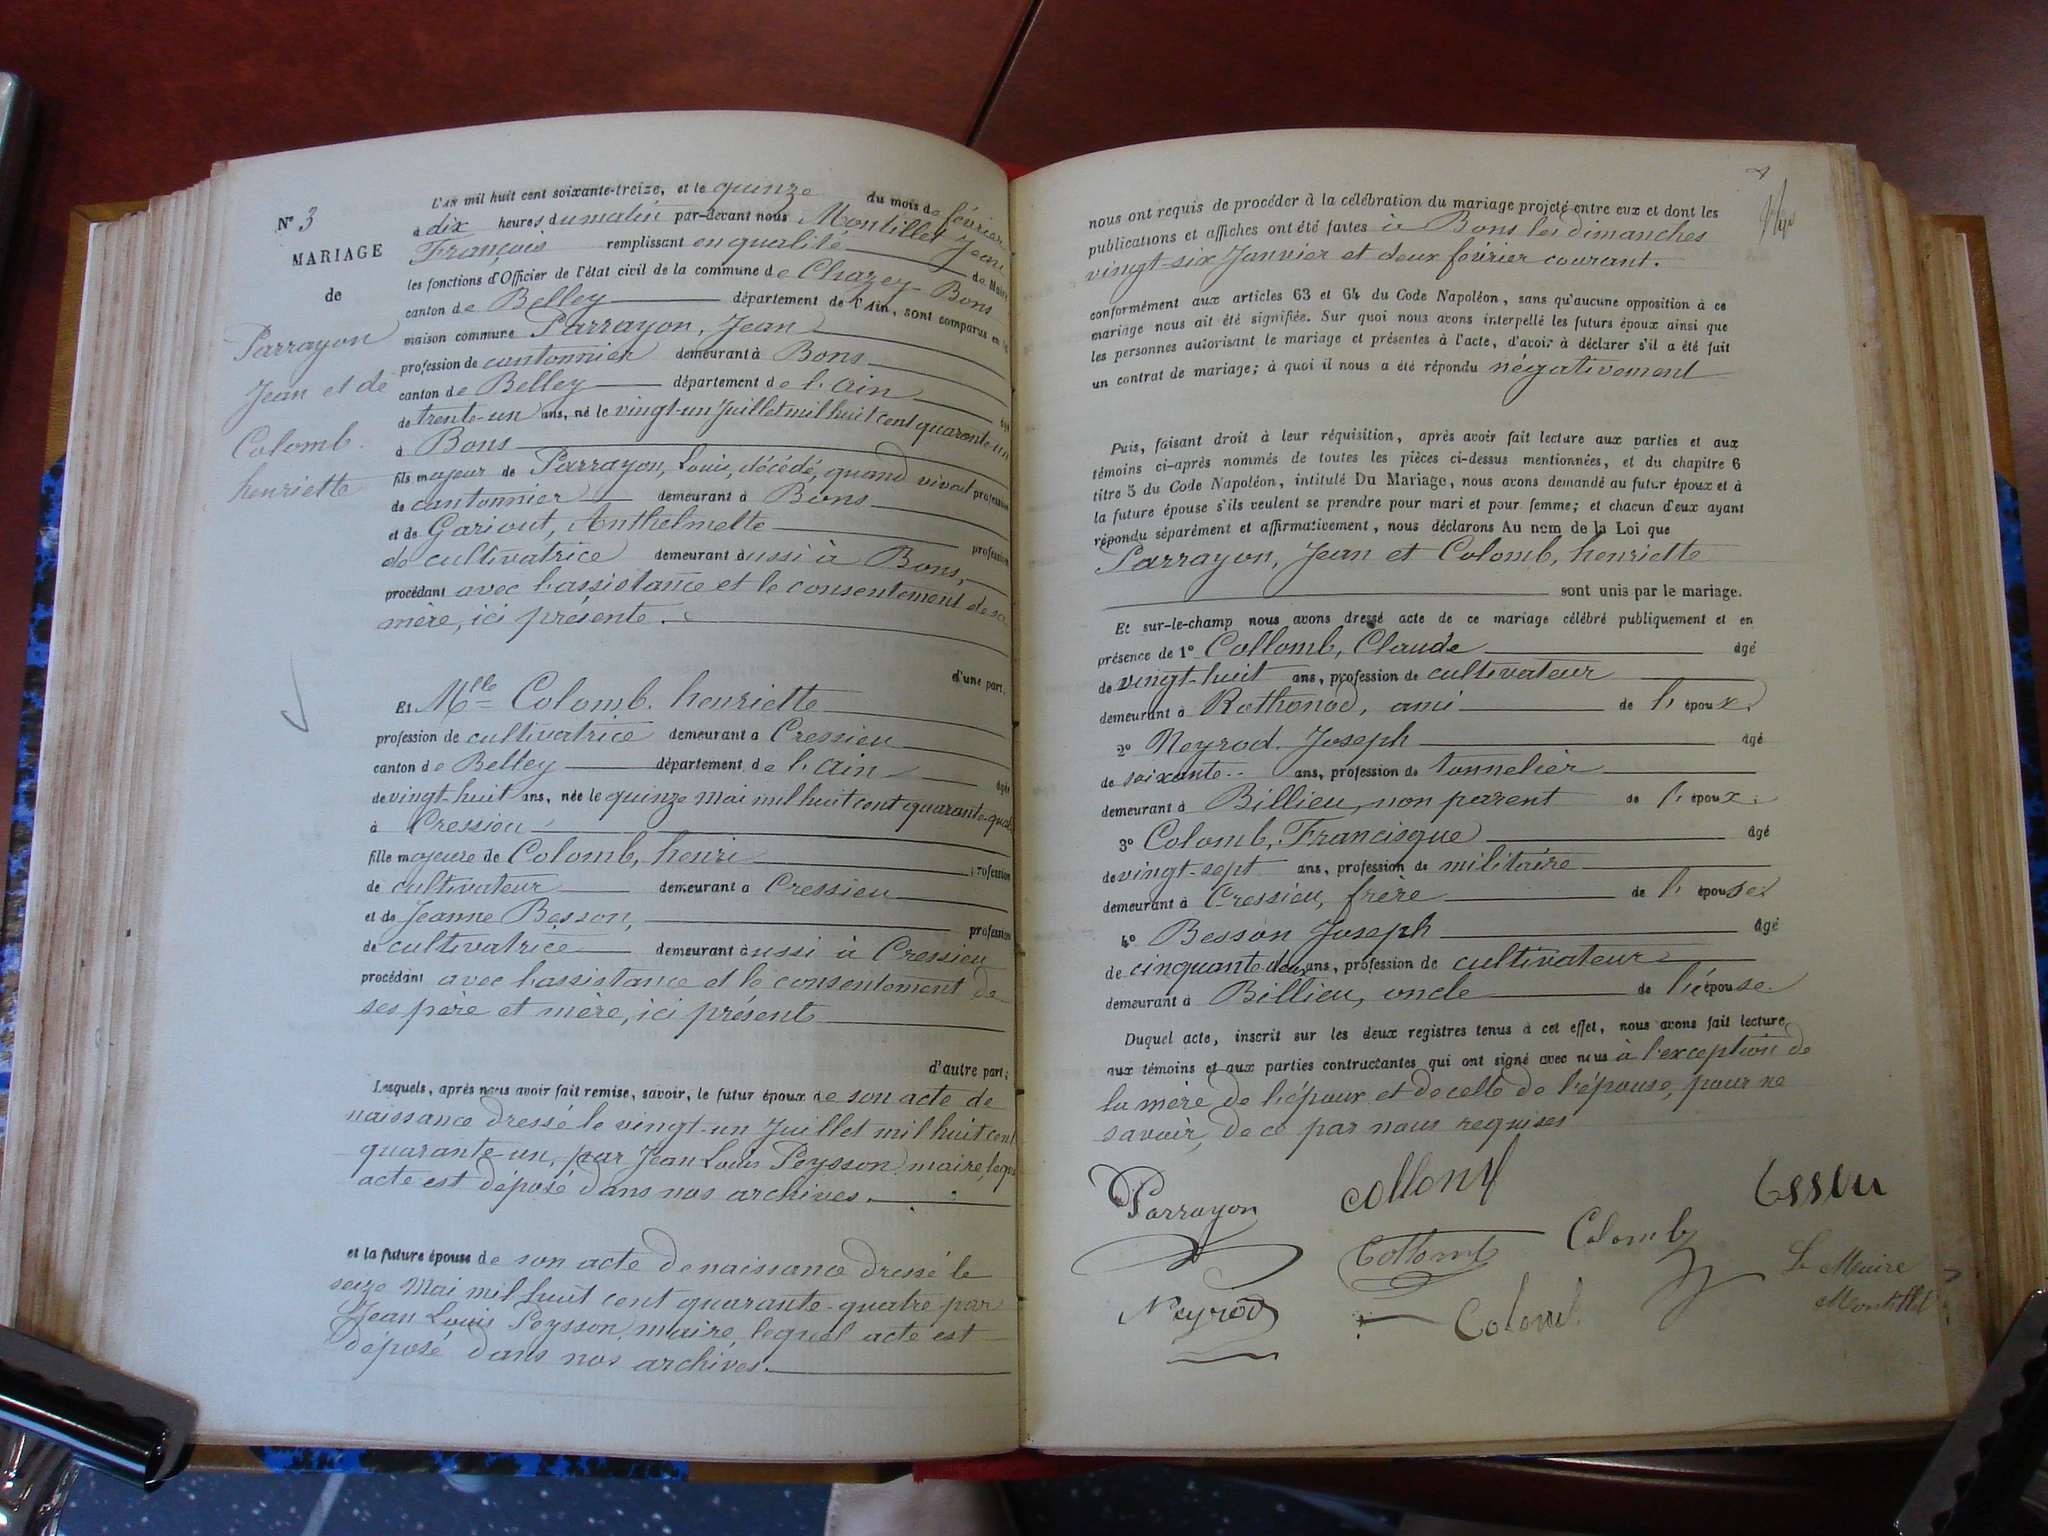 N° 3
MARIAGE
de
Parrayon
Jean et de
Colomb.
henriette
L'AN mil huit cent soixante-treize, et le quinze du mois de février
à dix heures du matin par-devant nous Montillet Jean
François remplissant en qualité de Maire
les fonctions d'Officier de l'état civil de la commune de Chazey-Bons
canton de Belley département de l'Ain, sont comparus en la
maison commune Parrayon, Jean
profession de cantonnier demeurant à Bons
canton de Belley département de l'ain âgé
de trente-un ans, né le vingt-un Juillet mil huit cent quarante-un
à Bons
fils majeur de Parrayon, Louis, décédé, quand vivait profession
de cantonnier demeurant à Bons
et de Gariout, Anthelmette profession
de cultivatrice demeurant aussi à Bons,
procédant avec l'assistance et le consentement de sa
mère, ici présente.
d'une part,
Et Mlle Colomb. henriette
profession de cultivatrice demeurant à Cressieu
canton de Belley département de l'ain âgée
de vingt-huit ans, née le quinze Mai mil huit cent quarante-quatre
à Cressieu
fille majeure de Colomb, henri profession
de cultivateur demeurant à Cressieu
et de Jeanne Besson, profession
de cultivatrice demeurant aussi à Cressieu
procédant avec l'assistance et le consentement de
ses père et mère, ici présents
d'autre part;
Lesquels, après nous avoir fait remise, savoir, le futur époux de son acte de
naissance dressé le vingt-un Juillet mil huit cent
quarante-un, par Jean Louis Peysson, maire, lequel
acte est déposé dans nos archives.
et la future épouse de son acte de naissance dressé le
seize Mai mil huit cent quarante-quatre par
Jean Louis Peysson, maire, lequel acte est
déposé dans nos archives.
nous ont requis de procéder à la célébration du mariage projeté entre eux et dont les
publications et affiches ont été faites à Bons les dimanches
vingt-six Janvier et deux février courant.
conformément aux articles 63 et 64 du Code Napoléon, sans qu'aucune opposition à ce
mariage nous ait été signifiée. Sur quoi nous avons interpellé les futurs époux ainsi que
les personnes autorisant le mariage et présentes à l'acte, d'avoir à déclarer s'il a été fait
un contrat de mariage; à quoi il nous a été répondu négativement
Puis, faisant droit à leur réquisition, après avoir fait lecture aux parties et aux
témoins ci-après nommés de toutes les pièces ci-dessus mentionnées, et du chapitre 6
titre 5 du Code Napoléon, intitulé Du Mariage, nous avons demandé au futur époux et à
la future épouse s'ils veulent se prendre pour mari et pour femme; et chacun d'eux ayant
répondu séparément et affirmativement, nous déclarons Au nom de la Loi que
Parrayon, Jean et Colomb, henriette
sont unis par le mariage.
Et sur-le-champ nous avons dressé acte de ce mariage célébré publiquement et en
présence de 1° Collomb, Claude âgé
de vingt-huit ans, profession de cultivateur
demeurant à Rothonod, ami de l'époux.
2° Neyrod. Joseph âgé
de soixante.. ans, profession de tonnelier
demeurant à Billieu, non parent de l'époux.
3° Colomb, Francisque âgé
de vingt-sept ans, profession de militaire
demeurant à Cressieu, frère de l'épouse
4° Besson Joseph âgé
de cinquante-deux ans, profession de cultivateur
demeurant à Billieu, oncle de l'épouse.
Duquel acte, inscrit sur les deux registres tenus à cet effet, nous avons fait lecture
aux témoins et aux parties contractantes qui ont signé avec nous à l'exception de
la mère de l'époux et de celle de l'épouse, pour ne
savoir, de ce par nous requises
Parrayon
Collomb
Collomb
Colomb
Neyrod
Colomb
Le Maire
Montillet